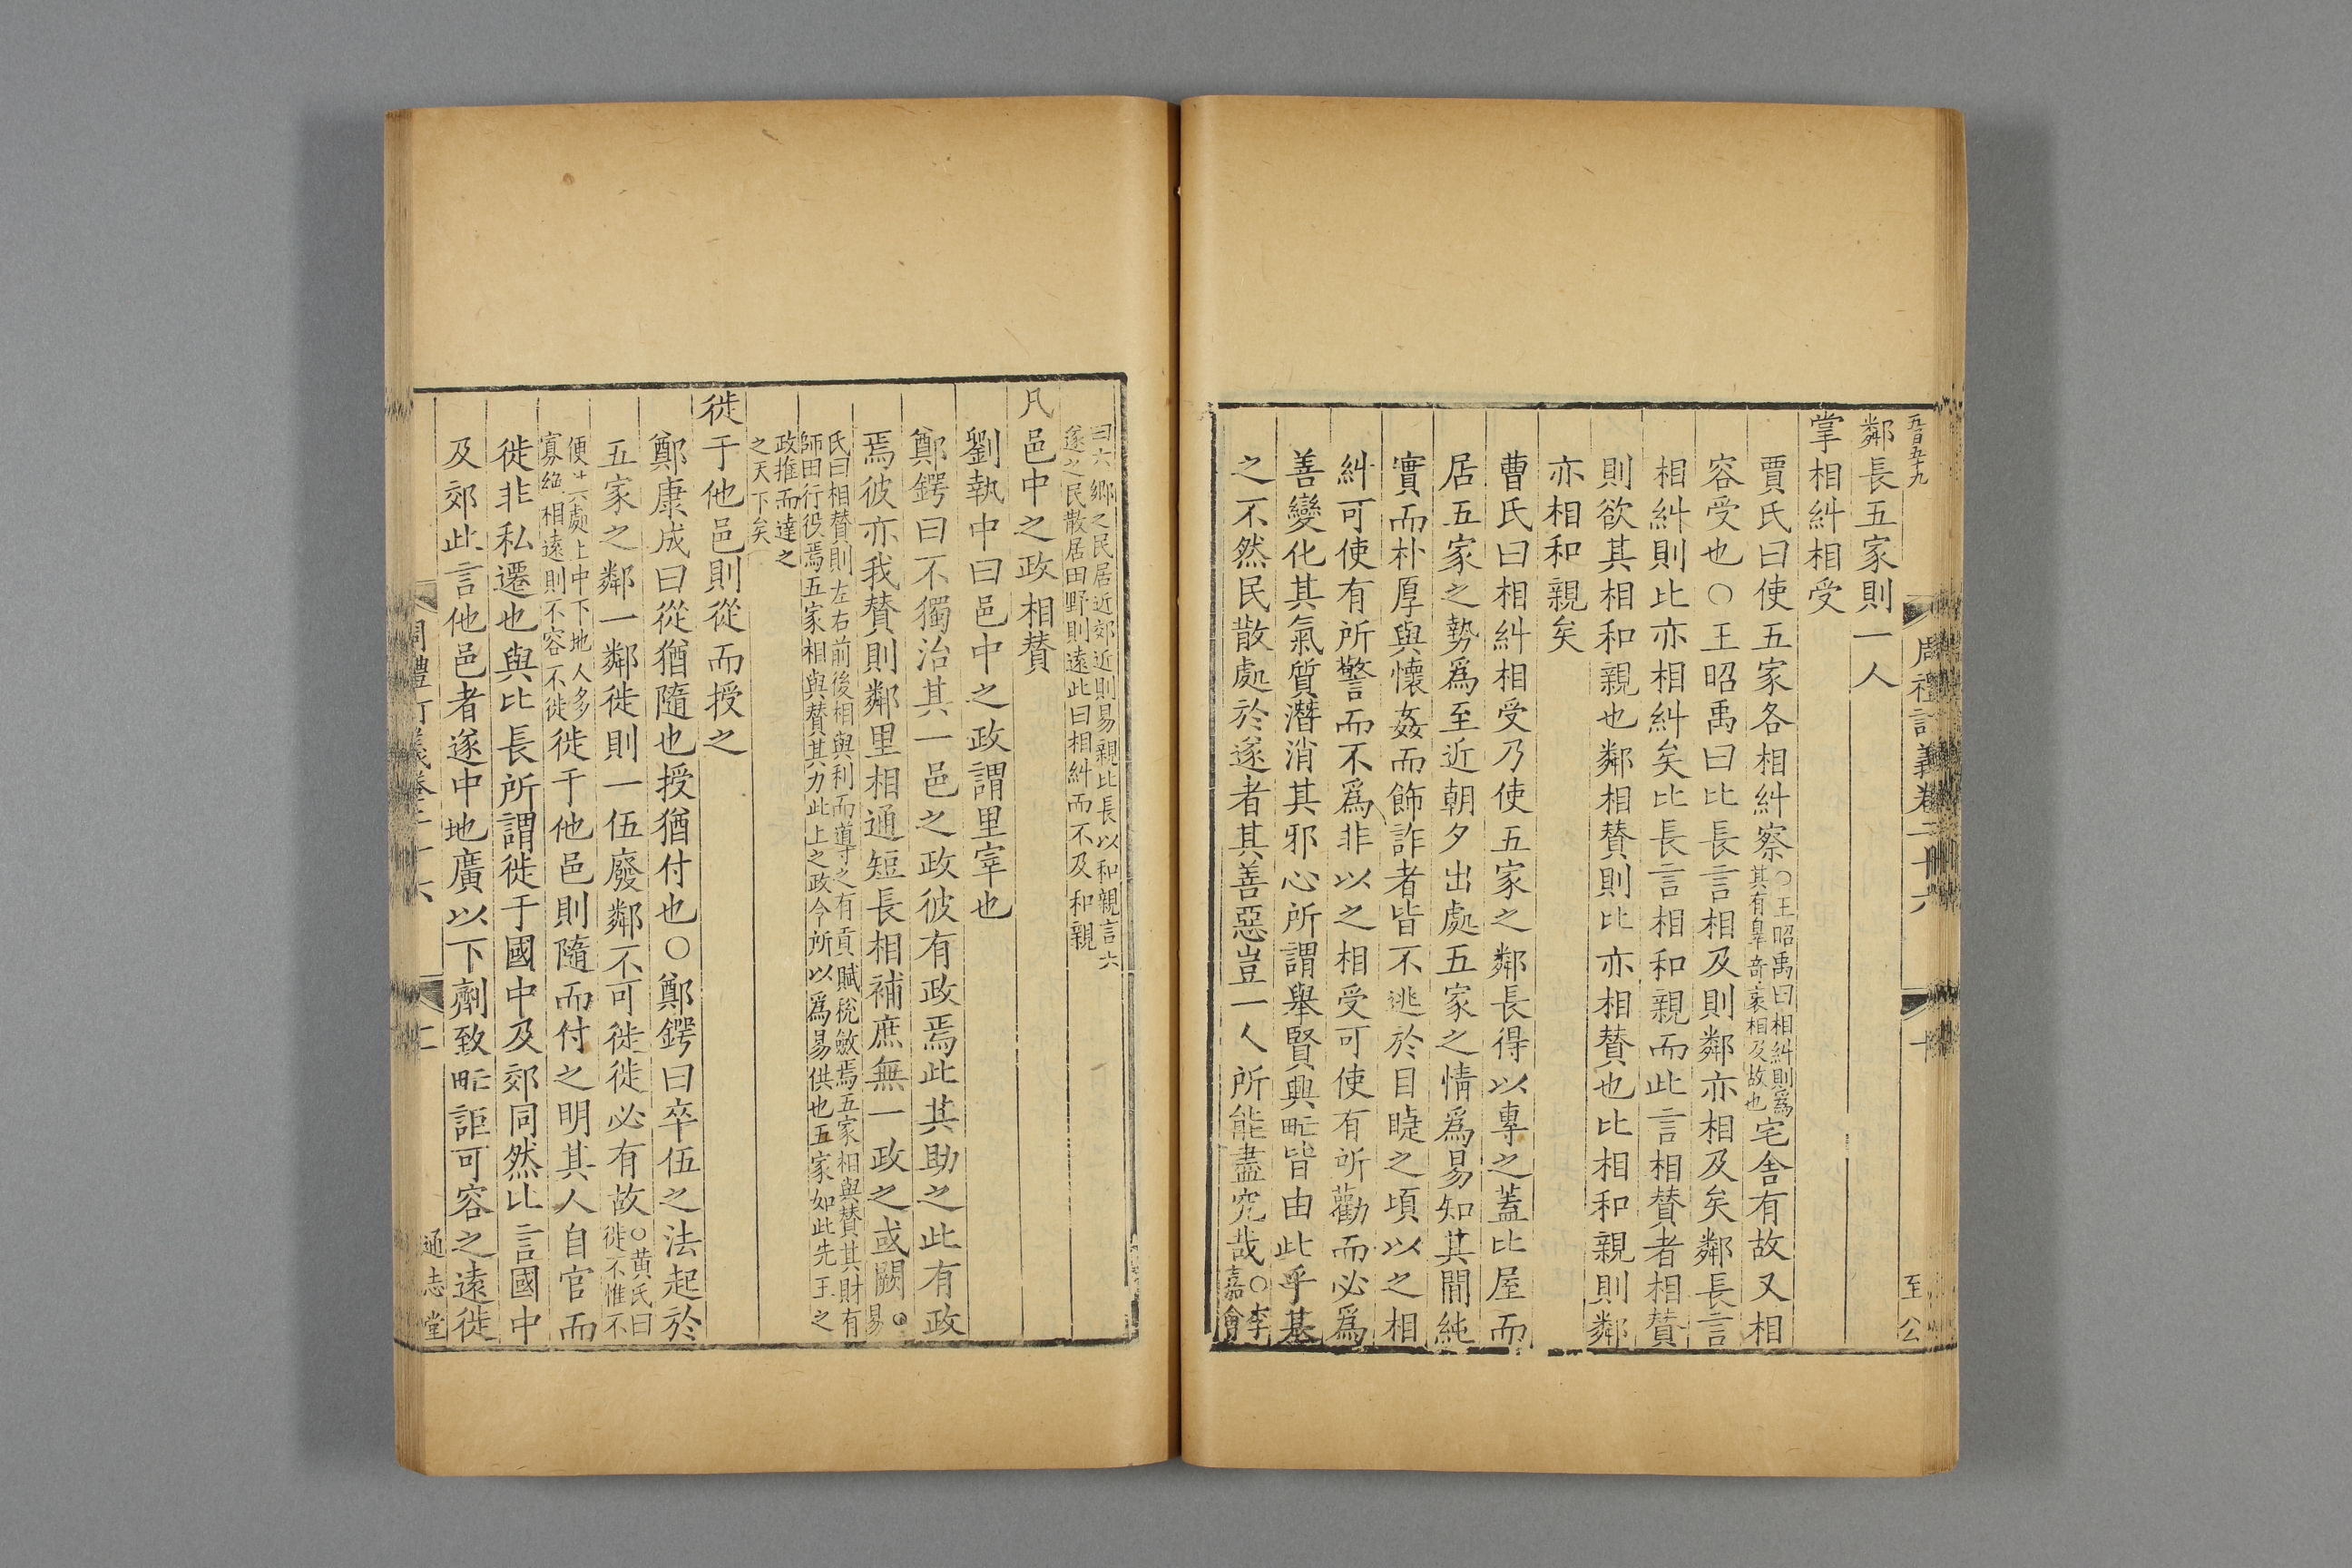 五百五十九
周禮訂義卷二十六
十
至公
鄰長五家則一人
掌相糾相受
賈氏曰使五家各相糾察○王昭禹曰相糾則爲其有辠奇衺相及故也宅舍有故又相
容受也○王昭禹曰比長言相及則鄰亦相及矣鄰長言
相糾則比亦相糾矣比長言相和親而此言相贊者相贊
則欲其相和親也鄰相贊則比亦相贊也比相和親則鄰
亦相和親矣
曹氏曰相糾相受乃使五家之鄰長得以專之蓋比屋而
居五家之勢爲至近朝夕出處五家之情爲易知其間純
實而朴厚與懷姦而飾詐者皆不逃於目睫之頃以之相
糾可使有所警而不爲非以之相受可使有所勸而必爲
善變化其氣質潛消其邪心所謂舉賢興甿皆由此乎基
之不然民散處於遂者其善惡豈一人所能盡究哉○李嘉會
曰六鄉之民居近郊近則易親比長以和親言六
遂之民散居田野則遠此曰相糾而不及和親
凡邑中之政相贊
劉執中曰邑中之政謂里宰也
鄭鍔曰不獨治其一邑之政彼有政焉此其助之此有政
焉彼亦我贊則鄰里相通短長相補庶無一政之或闕○易
氏曰相贊則左右前後相與利而導之有貢賦稅斂焉五家相與贊其財有
師田行役焉五家相與贊其力此上之政令所以爲易供也五家如此先王之
政推而達之
之天下矣
徙于他邑則從而授之
鄭康成曰從猶隨也授猶付也○鄭鍔曰卒伍之法起於
五家之鄰一鄰徙則一伍廢鄰不可徙徙必有故○黃氏曰徙不惟不
便其處上中下地人多寡絶相遠則不容不徙徙于他邑則隨而付之明其人自官而
徙非私遷也與比長所謂徙于國中及郊同然比言國中
及郊此言他邑者遂中地廣以下劑致甿詎可容之遠徙
周禮訂義卷二十六
通志堂